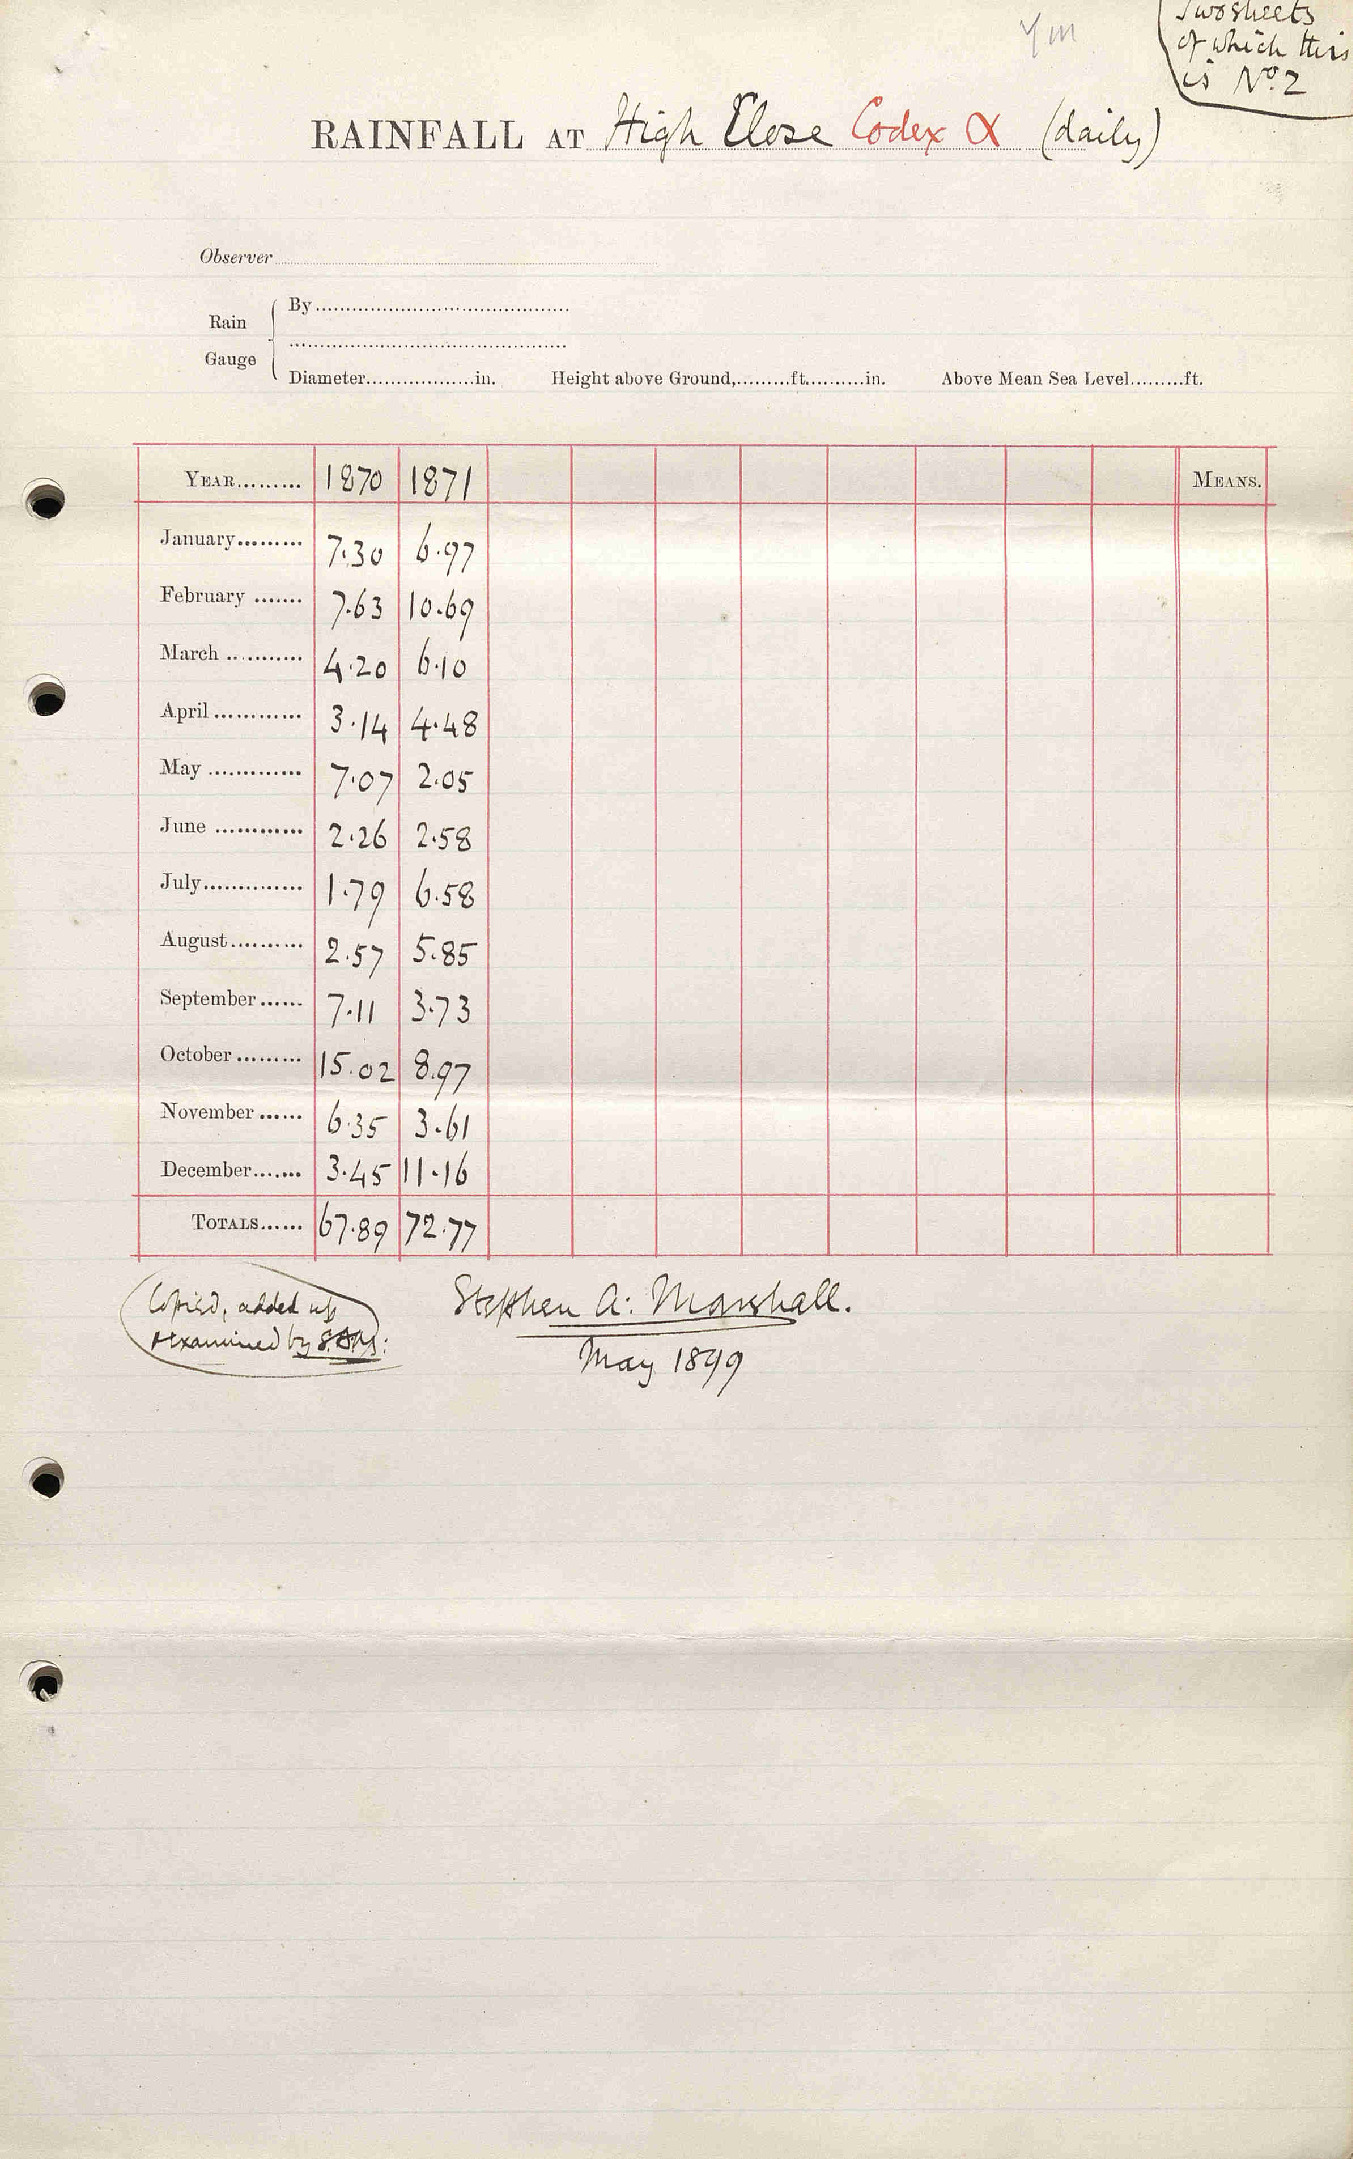 Two sheets
of which this
is No. 2
Ym
RAINFALL AT High Close Codex α (daily)
Observer
Rain Gauge { By
Diameter in. Height above Ground, ft. in. Above Mean Sea Level ft.
YEAR 1870 1871 MEANS.
January 7.30 6.97
February 7.63 10.69
March 4.20 6.10
April 3.14 4.48
May 7.07 2.05
June 2.26 2.58
July 1.79 6.58
August 2.57 5.85
September 7.11 3.73
October 15.02 8.97
November 6.35 3.61
December 3.45 11.16
TOTALS 67.89 72.77
Copied, added up
& examined by S.A.M:
Stephen A: Marshall.
May 1899